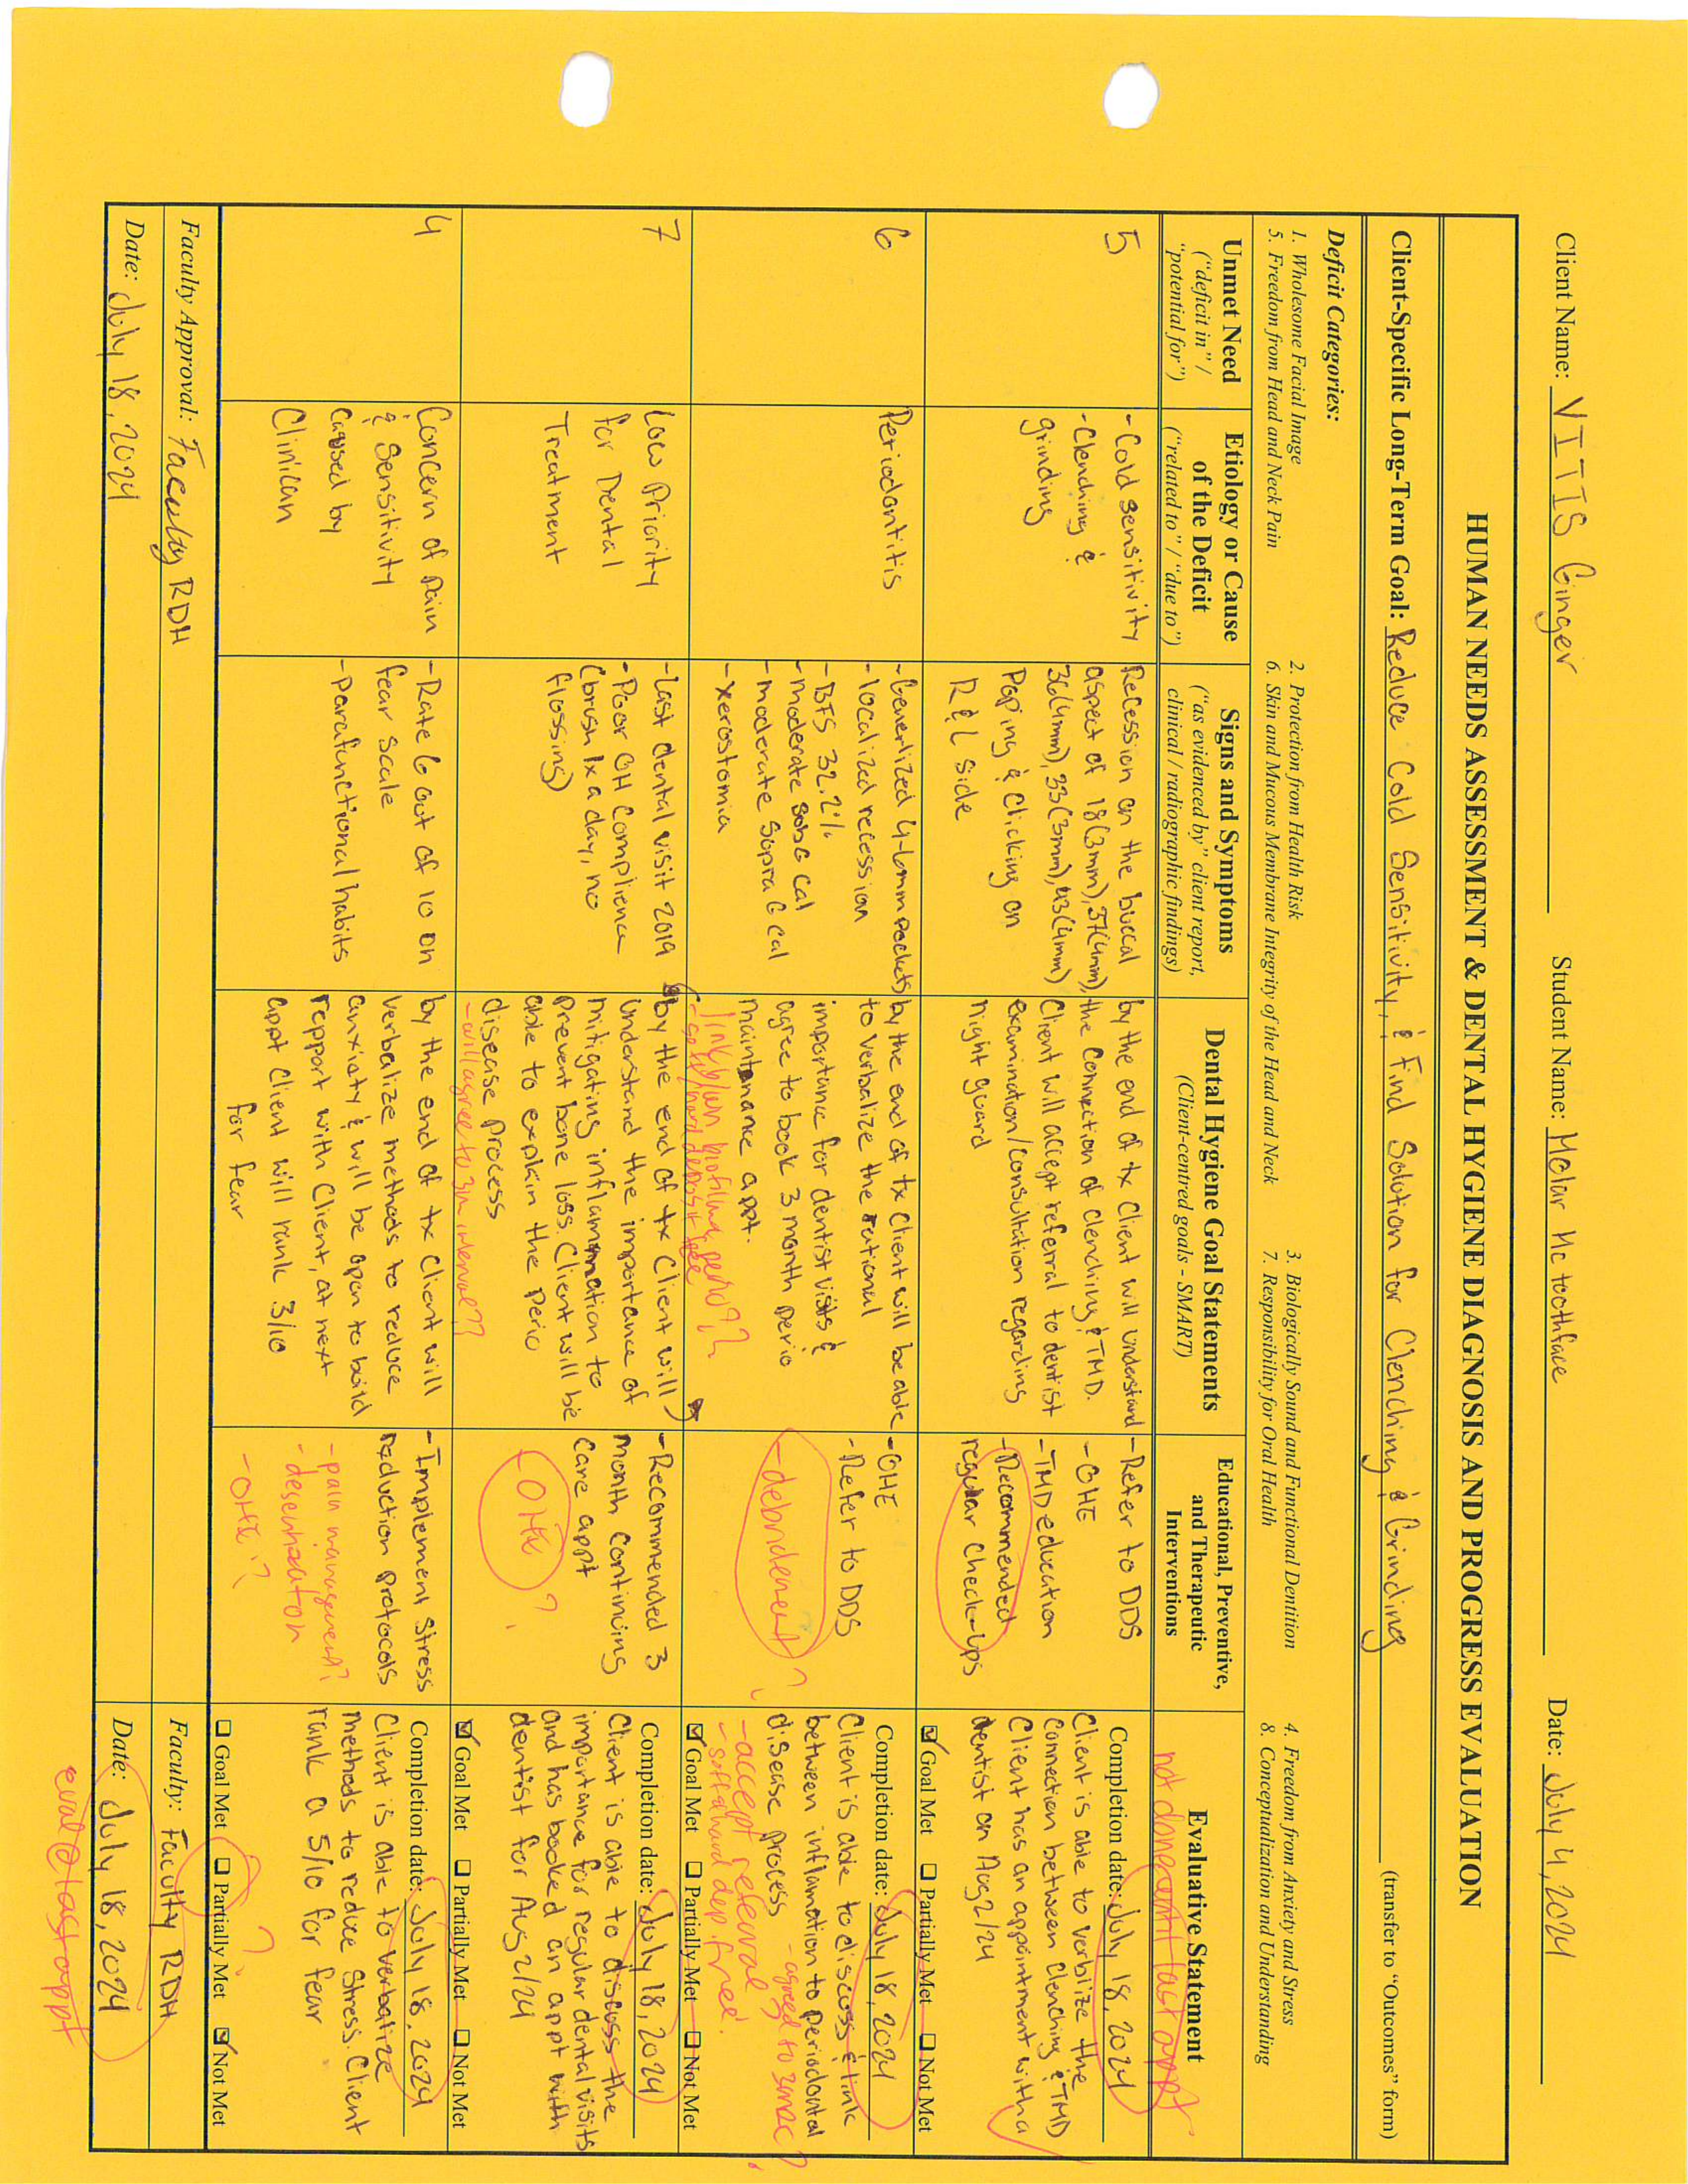 Client Name: VITIS Ginger Student Name: Molar Mc toothface Date: July 4, 2024
HUMAN NEEDS ASSESSMENT & DENTAL HYGIENE DIAGNOSIS AND PROGRESS EVALUATION
Client-Specific Long-Term Goal: Reduce Cold Sensitivity, & Find Solution for Clenching & Grinding (transfer to "Outcomes" form)
Deficit Categories:
1. Wholesome Facial Image 2. Protection from Health Risk 3. Biologically Sound and Functional Dentition 4. Freedom from Anxiety and Stress
5. Freedom from Head and Neck Pain 6. Skin and Mucous Membrane Integrity of the Head and Neck 7. Responsibility for Oral Health 8. Conceptualization and Understanding
Unmet Need
("deficit in" /
"potential for")
Etiology or Cause
of the Deficit
("related to" / "due to")
Signs and Symptoms
("as evidenced by" client report,
clinical / radiographic findings)
Dental Hygiene Goal Statements
(Client-centred goals - SMART)
Educational, Preventive,
and Therapeutic
Interventions
Evaluative Statement
not done until last appt
5
- Cold sensitivity
- Clenching &
grinding
Recession on the buccal
aspect of 18(3mm), 37(4mm),
36(4mm), 33(3mm), 43(4mm)
Poping & Clicking on
R & L side
by the end of tx Client will understand
the connection of clenching & TMD.
Client will accept referral to dentist
examination/consultation regarding
night guard
- Refer to DDS
- OHE
- TMD education
- Recommended
regular check-ups
Completion date: July 18, 2024
Client is able to verbilize the
connection between clenching & TMD
Client has an appointment with a
dentist on Aug 2/24
☑ Goal Met ☐ Partially Met ☐ Not Met
6
Periodontitis
- Generlized 4-6mm pockets
- localized recession
- BFS 32.2%
- moderate sub G cal
- moderate Supra G cal
- xerostomia
by the end of tx Client will be able
to verbalize the rational
importance for dentist visits &
agree to book 3 month perio
maintenance appt.
link b/wn biofilm & perio??
- soft/hard deposit free
- OHE
- Refer to DDS
- debridement?
Completion date: July 18, 2024
Client is able to discuss & link
between inflamation to periodontal
disease process - agreed to 3mrc?
- accept referral
- soft & hard dep. free!
☑ Goal Met ☐ Partially Met ☐ Not Met
7
Low Priority
for Dental
Treatment
- Last dental visit 2019
- Poor OH Complience
(brush 1x a day, no
flossing)
by the end of tx Client will
understand the importance of
mitigating inflammation to
prevent bone loss. Client will be
able to explain the perio
disease process
- will agree to 3m interval??
- Recommended 3
month Continuing
care appt
- OHE?
Completion date: July 18, 2024
Client is able to discuss the
importance for regular dental visits
and has booked an appt with
dentist for Aug 2/24
☑ Goal Met ☐ Partially Met ☐ Not Met
4
Concern of Pain
& Sensitivity
Caused by
Clinican
- Rate 6 out of 10 on
fear scale
- Parafunctional habits
by the end of tx Client will
verbalize methods to reduce
anxiaty & will be open to build
repport with Client, at next
appt Client will rank 3/10
for fear
- Implement Stress
reduction protocols
- pain management?
- desenhzaton
- OHE?
Completion date: July 18, 2024
Client is able to verbatize
methods to reduce Stress. Client
rank a 5/10 for fear
☐ Goal Met ☐ Partially Met ☑ Not Met
?
Faculty Approval: Faculty RDH Faculty: Faculty RDH
Date: July 18, 2024 Date: July 18, 2024
eval @ last appt